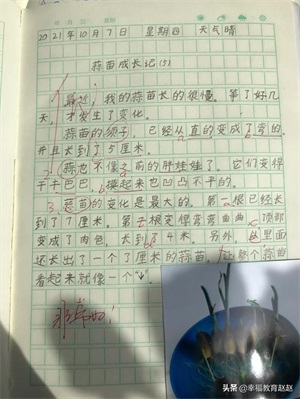 2021年10月7日 星期四 天气晴
蒜苗成长记(5)
我的蒜苗长的很慢。等了好几
天，才发生了变化。
蒜苗的须子，已经从直的变成了弯的。
并且长到了5厘米。
2 蒜也不像之前的胖娃娃了。它们变得
干干巴巴，摸起来也凹凸不平的。
3. 蒜苗的变化是最大的。第一根已经长
到了7厘米。第二根变得弯弯曲曲，顶部
变成了肉包，大到了4米。另外，里面
还长出了一个了厘米的蒜苗。这颗个蒜苗
看起来就像一个"小"。
非常好！
头条 @幸福教育赵赵